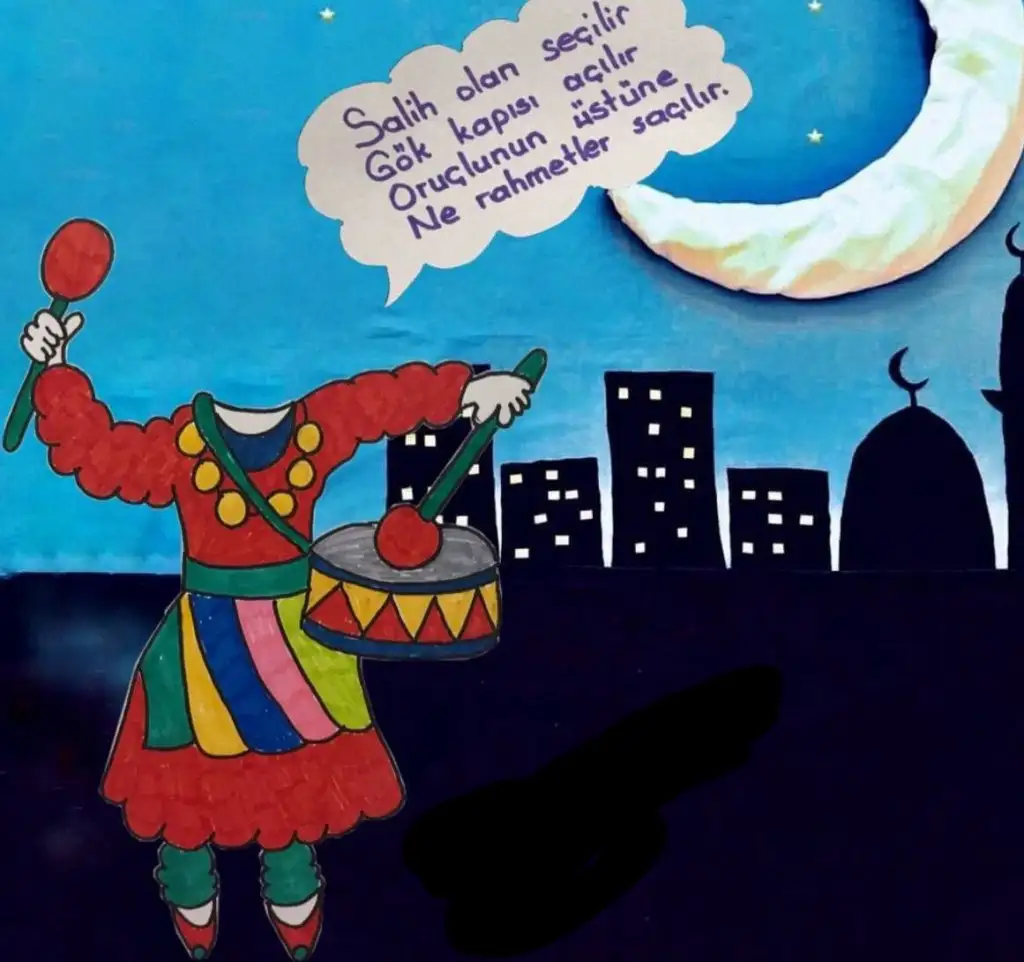 Salih olan seçilir
Gök kapısı açılır
Oruçlunun üstüne
Ne rahmetler saçılır.